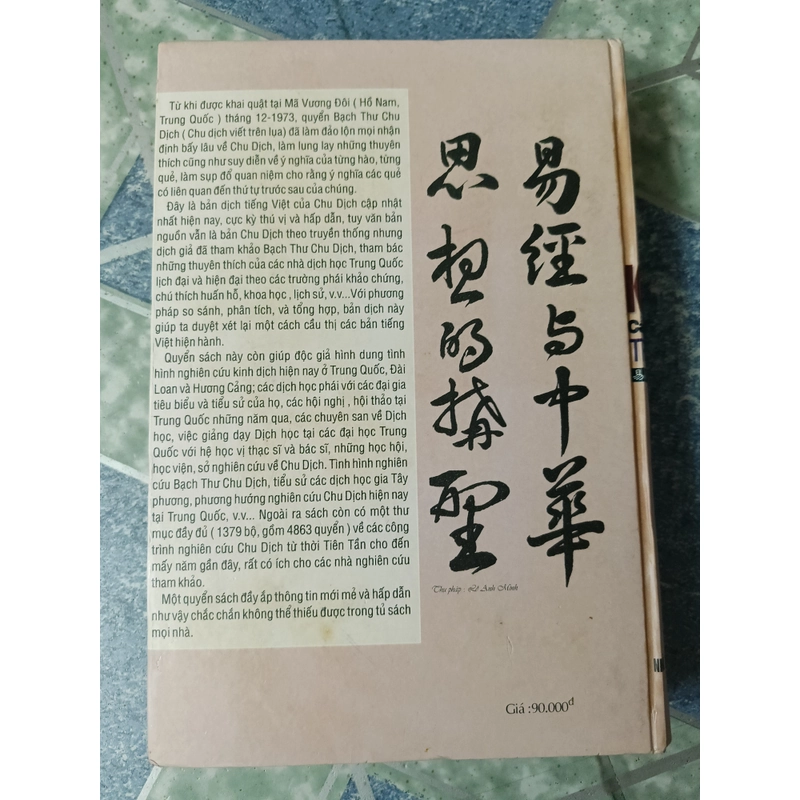 Từ khi được khai quật tại Mã Vương Đôi ( Hồ Nam,
Trung Quốc ) tháng 12-1973, quyển Bạch Thư Chu
Dịch ( Chu dịch viết trên lụa) đã làm đảo lộn mọi nhận
định bấy lâu về Chu Dịch, làm lung lay những thuyên
thích cũng như suy diễn về ý nghĩa của từng hào, từng
quẻ, làm sụp đổ quan niệm cho rằng ý nghĩa các quẻ
có liên quan đến thứ tự trước sau của chúng.
Đây là bản dịch tiếng Việt của Chu Dịch cập nhật
nhất hiện nay, cực kỳ thú vị và hấp dẫn, tuy văn bản
nguồn vẫn là bản Chu Dịch theo truyền thống nhưng
dịch giả đã tham khảo Bạch Thư Chu Dịch, tham bác
những thuyên thích của các nhà dịch học Trung Quốc
lịch đại và hiện đại theo các trường phái khảo chứng,
chú thích huấn hỗ, khoa học , lịch sử, v.v...Với phương
pháp so sánh, phân tích, và tổng hợp, bản dịch này
giúp ta duyệt xét lại một cách cầu thị các bản tiếng
Việt hiện hành.
Quyển sách này còn giúp độc giả hình dung tình
hình nghiên cứu kinh dịch hiện nay ở Trung Quốc, Đài
Loan và Hương Cảng; các dịch học phái với các đại gia
tiêu biểu và tiểu sử của họ, các hội nghị , hội thảo tại
Trung Quốc những năm qua, các chuyên san về Dịch
học, việc giảng dạy Dịch học tại các đại học Trung
Quốc với hệ học vị thạc sĩ và bác sĩ, những học hội,
học viện, sở nghiên cứu về Chu Dịch. Tình hình nghiên
cứu Bạch Thư Chu Dịch, tiểu sử các dịch học gia Tây
phương, phương hướng nghiên cứu Chu Dịch hiện nay
tại Trung Quốc, v.v... Ngoài ra sách còn có một thư
mục đầy đủ ( 1379 bộ, gồm 4863 quyển ) về các công
trình nghiên cứu Chu Dịch từ thời Tiên Tần cho đến
mấy năm gần đây, rất có ích cho các nhà nghiên cứu
tham khảo.
Một quyển sách đầy ắp thông tin mới mẻ và hấp dẫn
như vậy chắc chắn không thể thiếu được trong tủ sách
mọi nhà.
易經与中華
思想的構型
Thư pháp : Lê Anh Minh
Giá :90.000đ